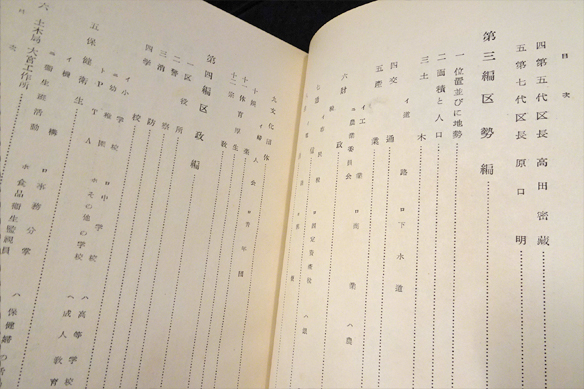 目次
四 第五代区長 高田密蔵
五 第七代区長 原口明
第三編 区勢編
一 位置並びに地勢
二 面積と人口
三 土木
四 交通
イ 道路 ロ 下水道
五 産業
イ 工業 ロ 商業 ハ 農
ニ 農業委員会
六 財政
九 文化団体
イ 婦人会 ロ 青年団
十一 体育厚生
十二 宗教
第四編 区政編
一 区役所
二 警察
三 消防
四 学校
イ 小学校 ロ 中学校 ハ 高等学校
ニ 幼稚園 ホ その他の学校 ハ 成人教育
ト PTA
五 保健衛生
イ 機構 ロ 事務分掌 ハ 保健婦
ニ 衛生班活動 ホ 食品衛生監視員
六 土木局 大宮工作所
目次